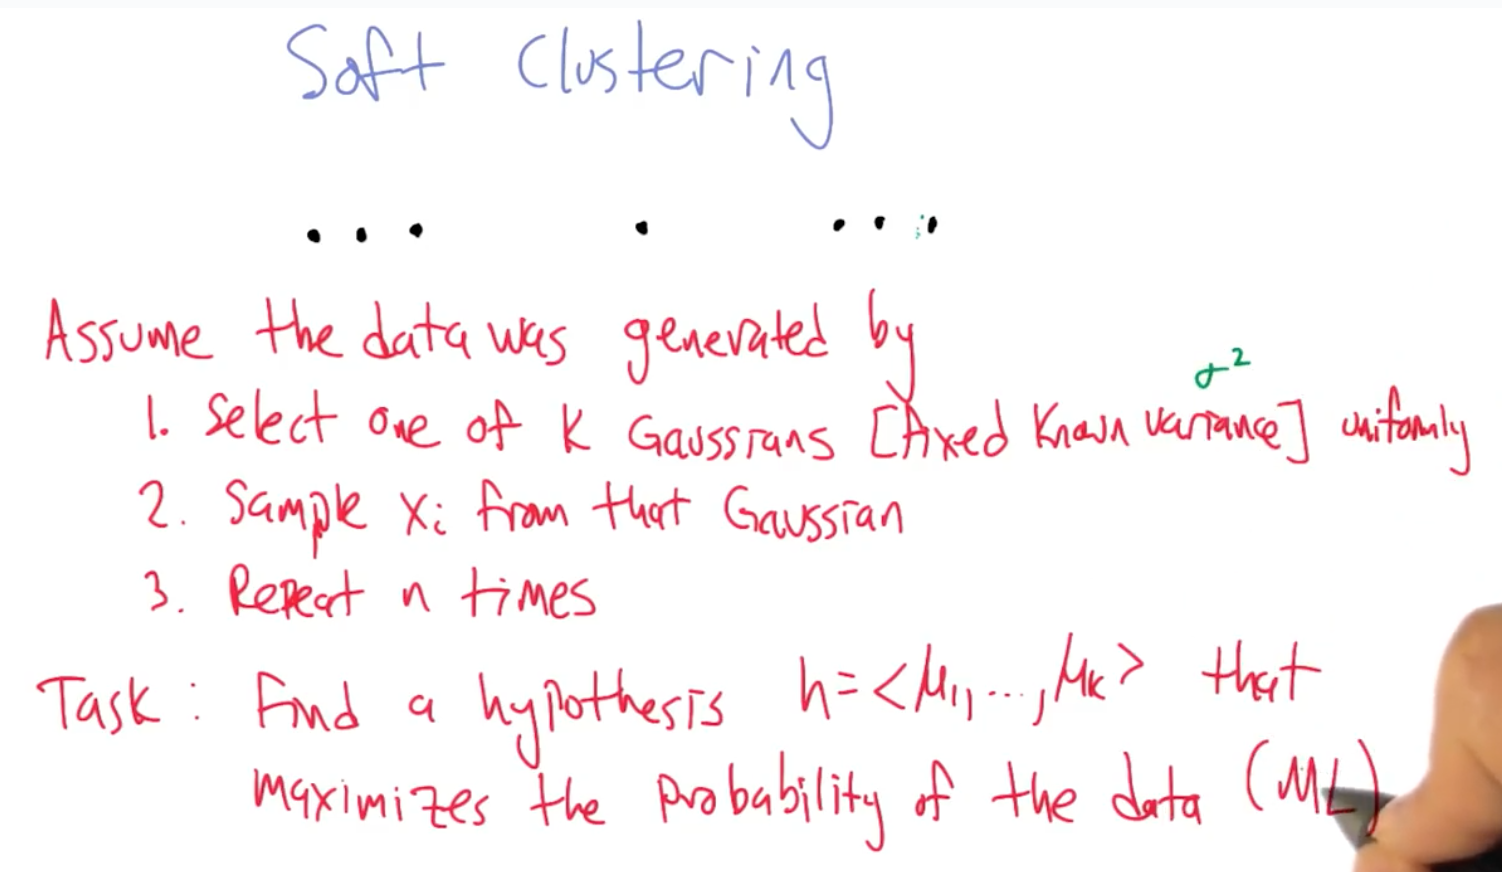 Soft Clustering
Assume the data was generated by
σ²
1. Select one of K Gaussians [Fixed Known variance] uniformly
2. Sample xᵢ from that Gaussian
3. Repeat n times
Task: Find a hypothesis h=<μ₁,...,μₖ> that
maximizes the probability of the data (ML)